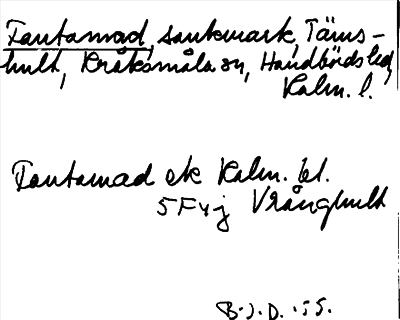 Fantamad, sankmark, Täms-
hult, Kråksmåla sn, Handbörds hd,
Kalm. l.
Fantamad ek Kalm. bl.
5F v j Vrånghult
B.J.D. -55.